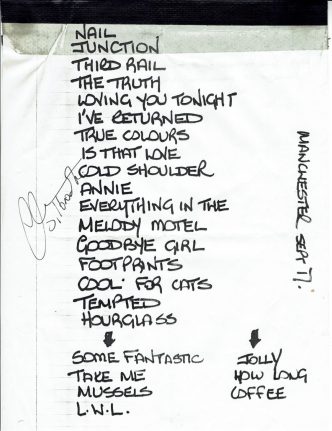 NAIL
JUNCTION
THIRD RAIL
THE TRUTH
LOVING YOU TONIGHT
I'VE RETURNED
TRUE COLOURS
IS THAT LOVE
COLD SHOULDER
ANNIE
EVERYTHING IN THE
MELODY MOTEL
GOODBYE GIRL
FOOTPRINTS
COOL FOR CATS
TEMPTED
HOURGLASS
SOME FANTASTIC
TAKE ME
MUSSELS
L.W.L.
JOLLY
HOW LONG
COFFEE
MANCHESTER SEPT 17.